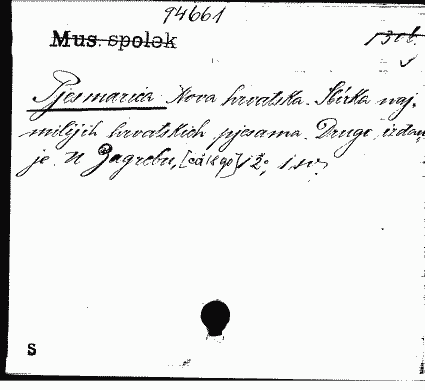 94661
Mus. spolek
130b.
Pjesmarica Nova hrvatska. Sbirka naj-
milijih hrvatskih pjesama. Drugo izdan
je. U Zagrebu, [ca 1890] 12°, 1 sv.
S